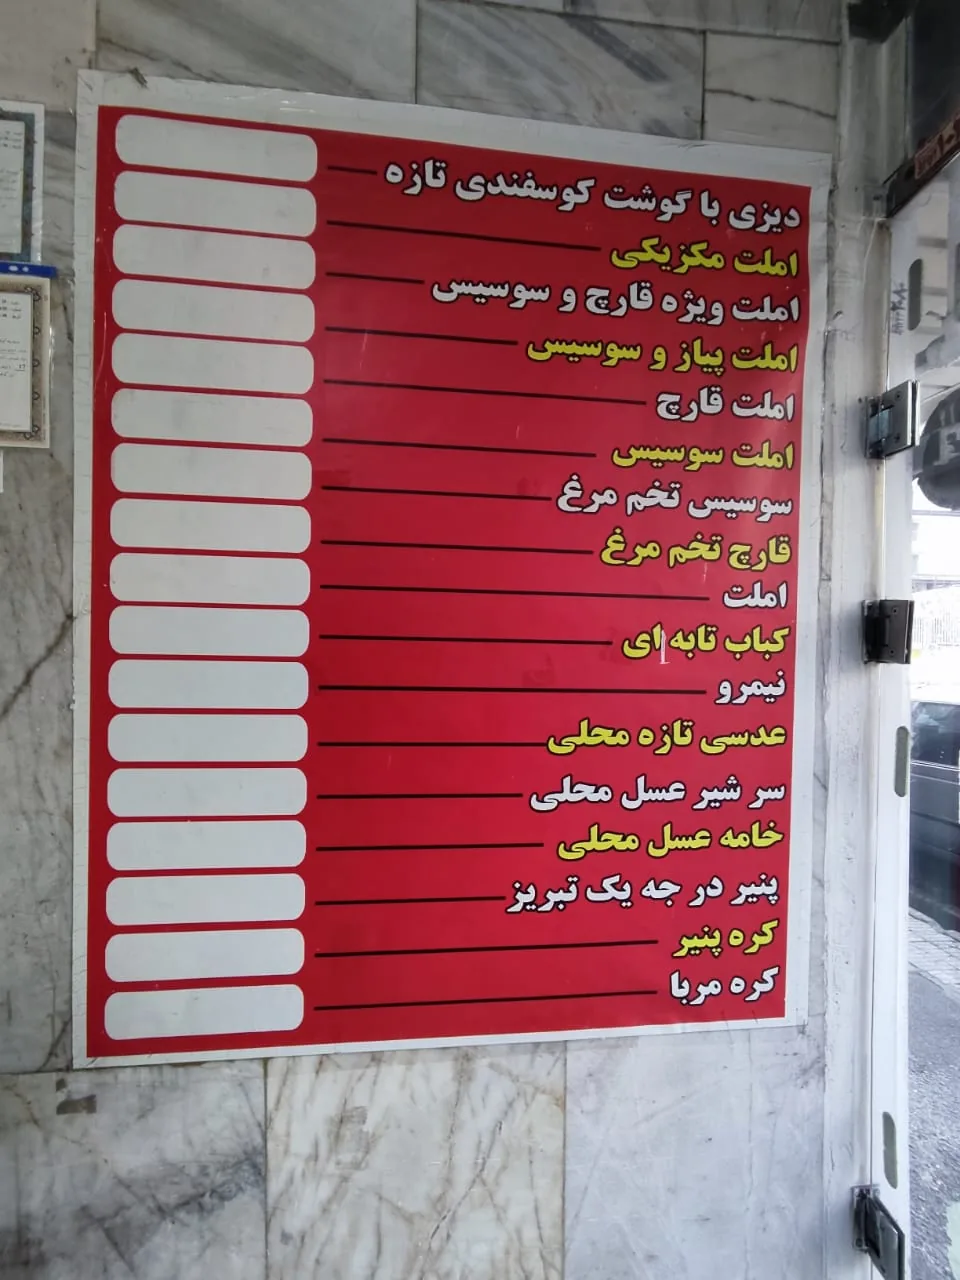 دیزی با گوشت گوسفندی تازه
املت مکزیکی
املت ویژه قارچ و سوسیس
املت پیاز و سوسیس
املت قارچ
املت سوسیس
سوسیس تخم مرغ
قارچ تخم مرغ
املت
کباب تابه ای
نیمرو
عدسی تازه محلی
سر شیر عسل محلی
خامه عسل محلی
پنیر در جه یک تبریز
کره پنیر
کره مربا